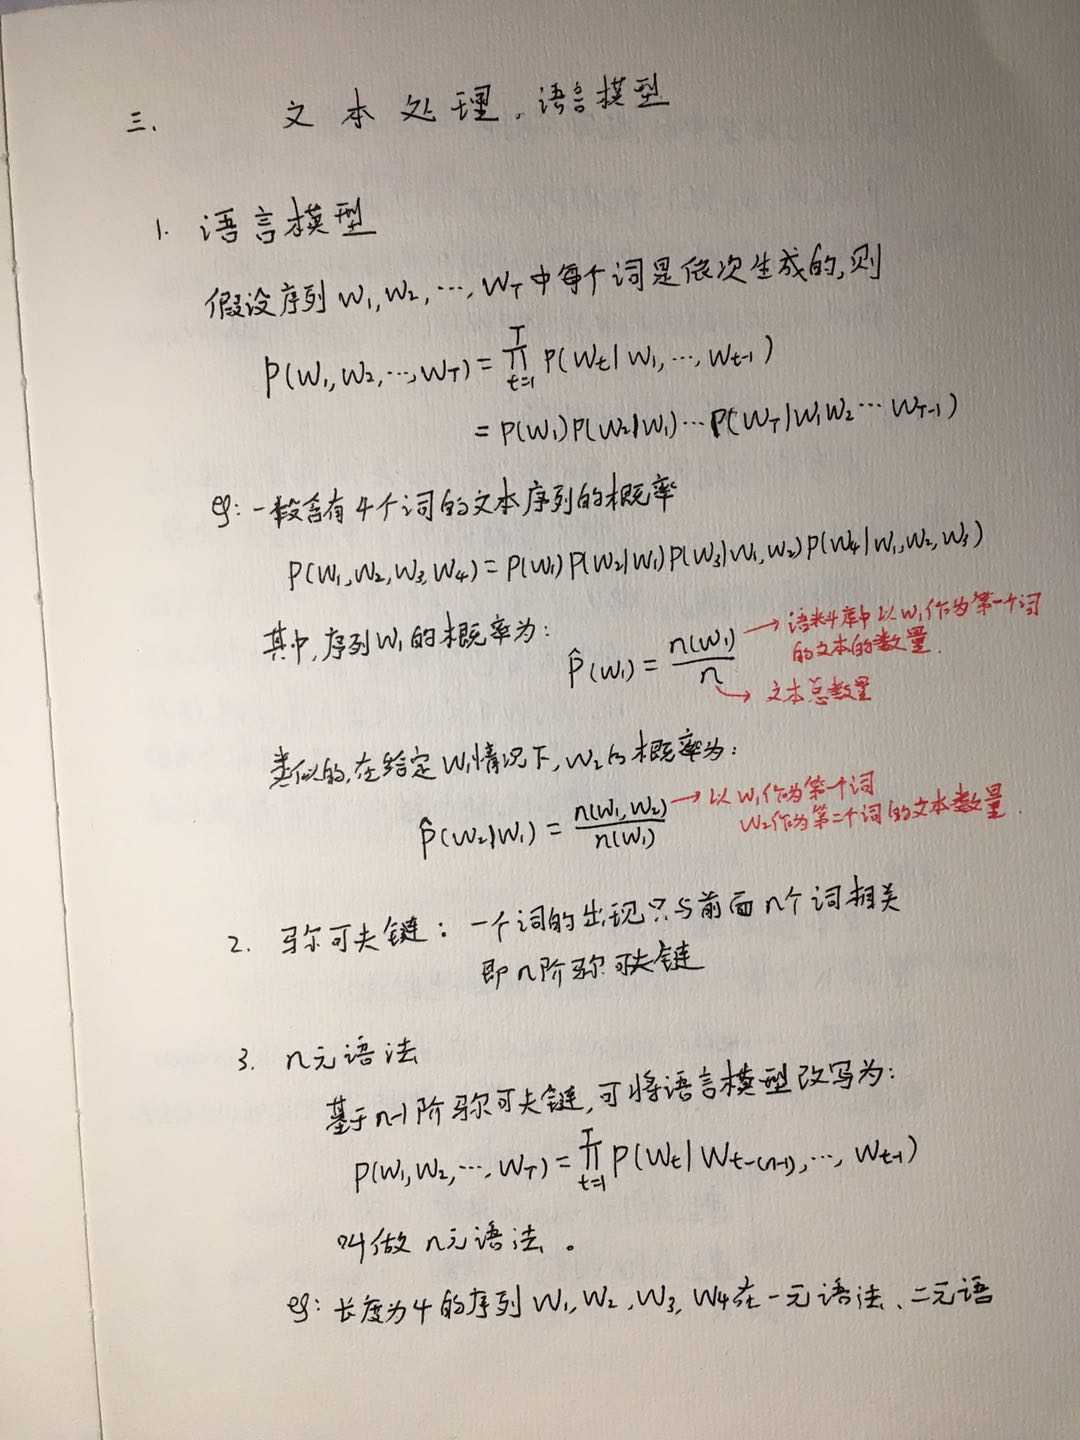 三、 文本处理,语言模型
1. 语言模型
假设序列 W₁,W₂,⋯,W_T中每个词是依次生成的,则
P(W₁,W₂,⋯,W_T) = ∏_{t=1}^{T} P(W_t|W₁,⋯,W_{t-1})
= P(W₁)P(W₂|W₁)⋯P(W_T|W₁W₂⋯W_{T-1})
eg: 一段含有4个词的文本序列的概率
P(W₁,W₂,W₃,W₄) = P(W₁)P(W₂|W₁)P(W₃|W₁,W₂)P(W₄|W₁,W₂,W₃)
其中,序列W₁的概率为:
P̂(W₁) = n(W₁)/n
→ 语料库中以W₁作为第一个词
的文本的数量.
→ 文本总数量
类似的,在给定W₁情况下,W₂的概率为:
P̂(W₂|W₁) = n(W₁,W₂)/n(W₁)
→ 以W₁作为第一个词
W₂作为第二个词的文本数量.
2. 马尔可夫链: 一个词的出现只与前面n个词相关
即n阶马尔可夫链
3. n元语法
基于n-1阶马尔可夫链,可将语言模型改写为:
P(W₁,W₂,⋯,W_T) = ∏_{t=1}^{T} P(W_t|W_{t-(n-1)},⋯,W_{t-1})
叫做n元语法。
eg: 长度为4的序列W₁,W₂,W₃,W₄在一元语法、二元语